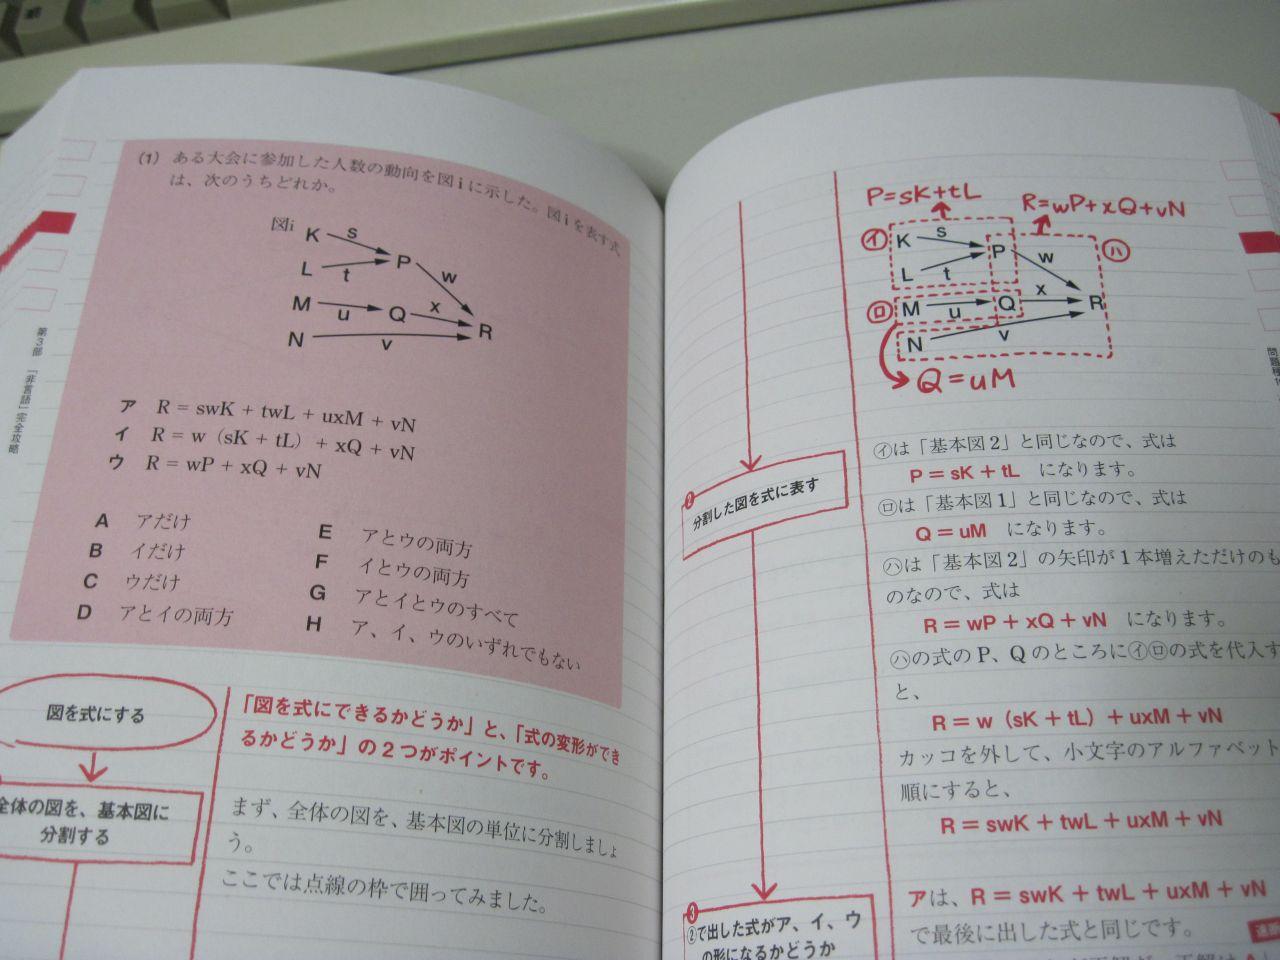 (1) ある大会に参加した人数の動向を図iに示した。図iを表す式
は、次のうちどれか。
図i
K s
P
L t
w
M u Q x
R
N v
ア R = swK + twL + uxM + vN
イ R = w（sK + tL）+ xQ + vN
ウ R = wP + xQ + vN
A アだけ
B イだけ
C ウだけ
D アとイの両方
E アとウの両方
F イとウの両方
G アとイとウのすべて
H ア、イ、ウのいずれでもない
第3部 「非言語」完全攻略
図を式にする
全体の図を、基本図に
分割する
「図を式にできるかどうか」と、「式の変形ができ
るかどうか」の2つがポイントです。
まず、全体の図を、基本図の単位に分割しましょ
う。
ここでは点線の枠で囲ってみました。
P=sK+tL
R=wP+xQ+vN
㋑ K s
P
㋩
L t
w
㋺ M u Q x
R
N v
Q=uM
❷
分割した図を式に表す
㋑は「基本図2」と同じなので、式は
P = sK + tL になります。
㋺は「基本図1」と同じなので、式は
Q = uM になります。
㋩は「基本図2」の矢印が1本増えただけのも
のなので、式は
R = wP + xQ + vN になります。
㋩の式のP、Qのところに㋑㋺の式を代入す
と、
R = w（sK + tL）+ uxM + vN
カッコを外して、小文字のアルファベット
順にすると、
R = swK + twL + uxM + vN
❸
②で出した式がア、イ、ウ
の形になるかどうか
アは、R = swK + twL + uxM + vN
で最後に出した式と同じです。